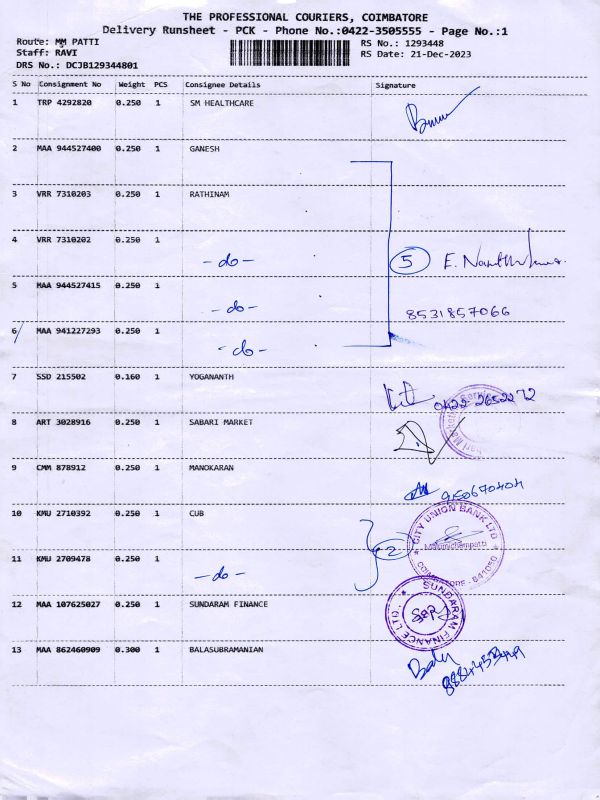 THE PROFESSIONAL COURIERS, COIMBATORE
Delivery Runsheet - PCK - Phone No.:0422-3505555 - Page No.:1
Route: MM PATTI
Staff: RAVI
DRS No.: DCJB129344801
RS No.: 1293448
RS Date: 21-Dec-2023
S No Consignment No Weight PCS Consignee Details Signature
1 TRP 4292820 0.250 1 SM HEALTHCARE
2 MAA 944527400 0.250 1 GANESH
3 VRR 7310203 0.250 1 RATHINAM
4 VRR 7310202 0.250 1 -do- 5
5 MAA 944527415 0.250 1 -do- 8531857066
6 MAA 941227293 0.250 1 -do-
7 SSD 215502 0.160 1 YOGANANTH
0422-2652272
8 ART 3028916 0.250 1 SABARI MARKET
9 CMM 878912 0.250 1 MANOKARAN
10 KMU 2710392 0.250 1 CUB
CITY UNION BANK LTD
Malumichampatti
COIMBATORE - 641050
2
11 KMU 2709478 0.250 1 -do-
12 MAA 107625027 0.250 1 SUNDARAM FINANCE
SUNDARAM FINANCE LTD.,
13 MAA 862460909 0.300 1 BALASUBRAMANIAN